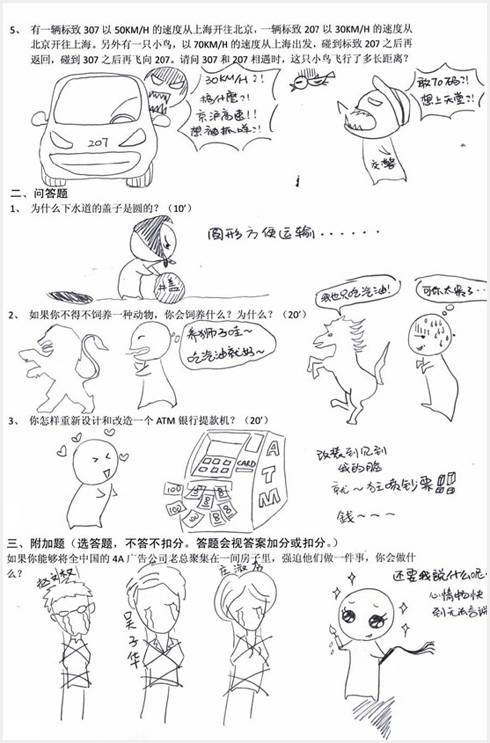 5、 有一辆标致 307 以 50KM/H 的速度从上海开往北京，一辆标致 207 以 30KM/H 的速度从
北京开往上海。另外有一只小鸟，以 70KM/H 的速度从上海出发，碰到标致 207 之后再
返回，碰到 307 之后再飞向 207。请问 307 和 207 相遇时，这只小鸟飞行了多长距离？
30KM/H？！
搞什麽？！
京沪高速！！
想被抓哇？！
敢70码？！
想上天堂？！
交警
207
二、问答题
1、 为什么下水道的盖子是圆的？（10'）
圆形方便运输······
2、 如果你不得不饲养一种动物，你会饲养什么？为什么？（20'）
养狮子哇~
吃汽油就好~
我也只吃汽油！
可你太臭了…
3、 你怎样重新设计和改造一个 ATM 银行提款机？（20'）
CARD
ATM
100
100
改装到见到
我的脸
就~狂喷钞票!!!
钱~~~
三、附加题（选答题，不答不扣分。答题会视答案加分或扣分。）
如果你能够将全中国的 4A 广告公司老总聚集在一间房子里，强迫他们做一件事，你会做什
么？
吴子华
庄淑芬
还要我说什么呢…
心情愉快
到无法言语